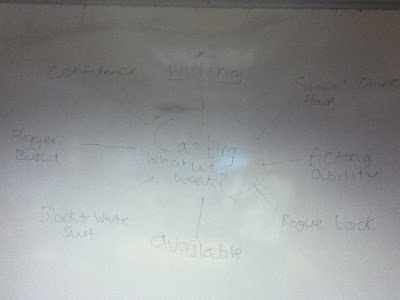 Confidence
Willing
Dark
Hair
Bigger
Build
Casting
What We
Want?
Acting
ability
Black + White
Suit
available
Rogue Look